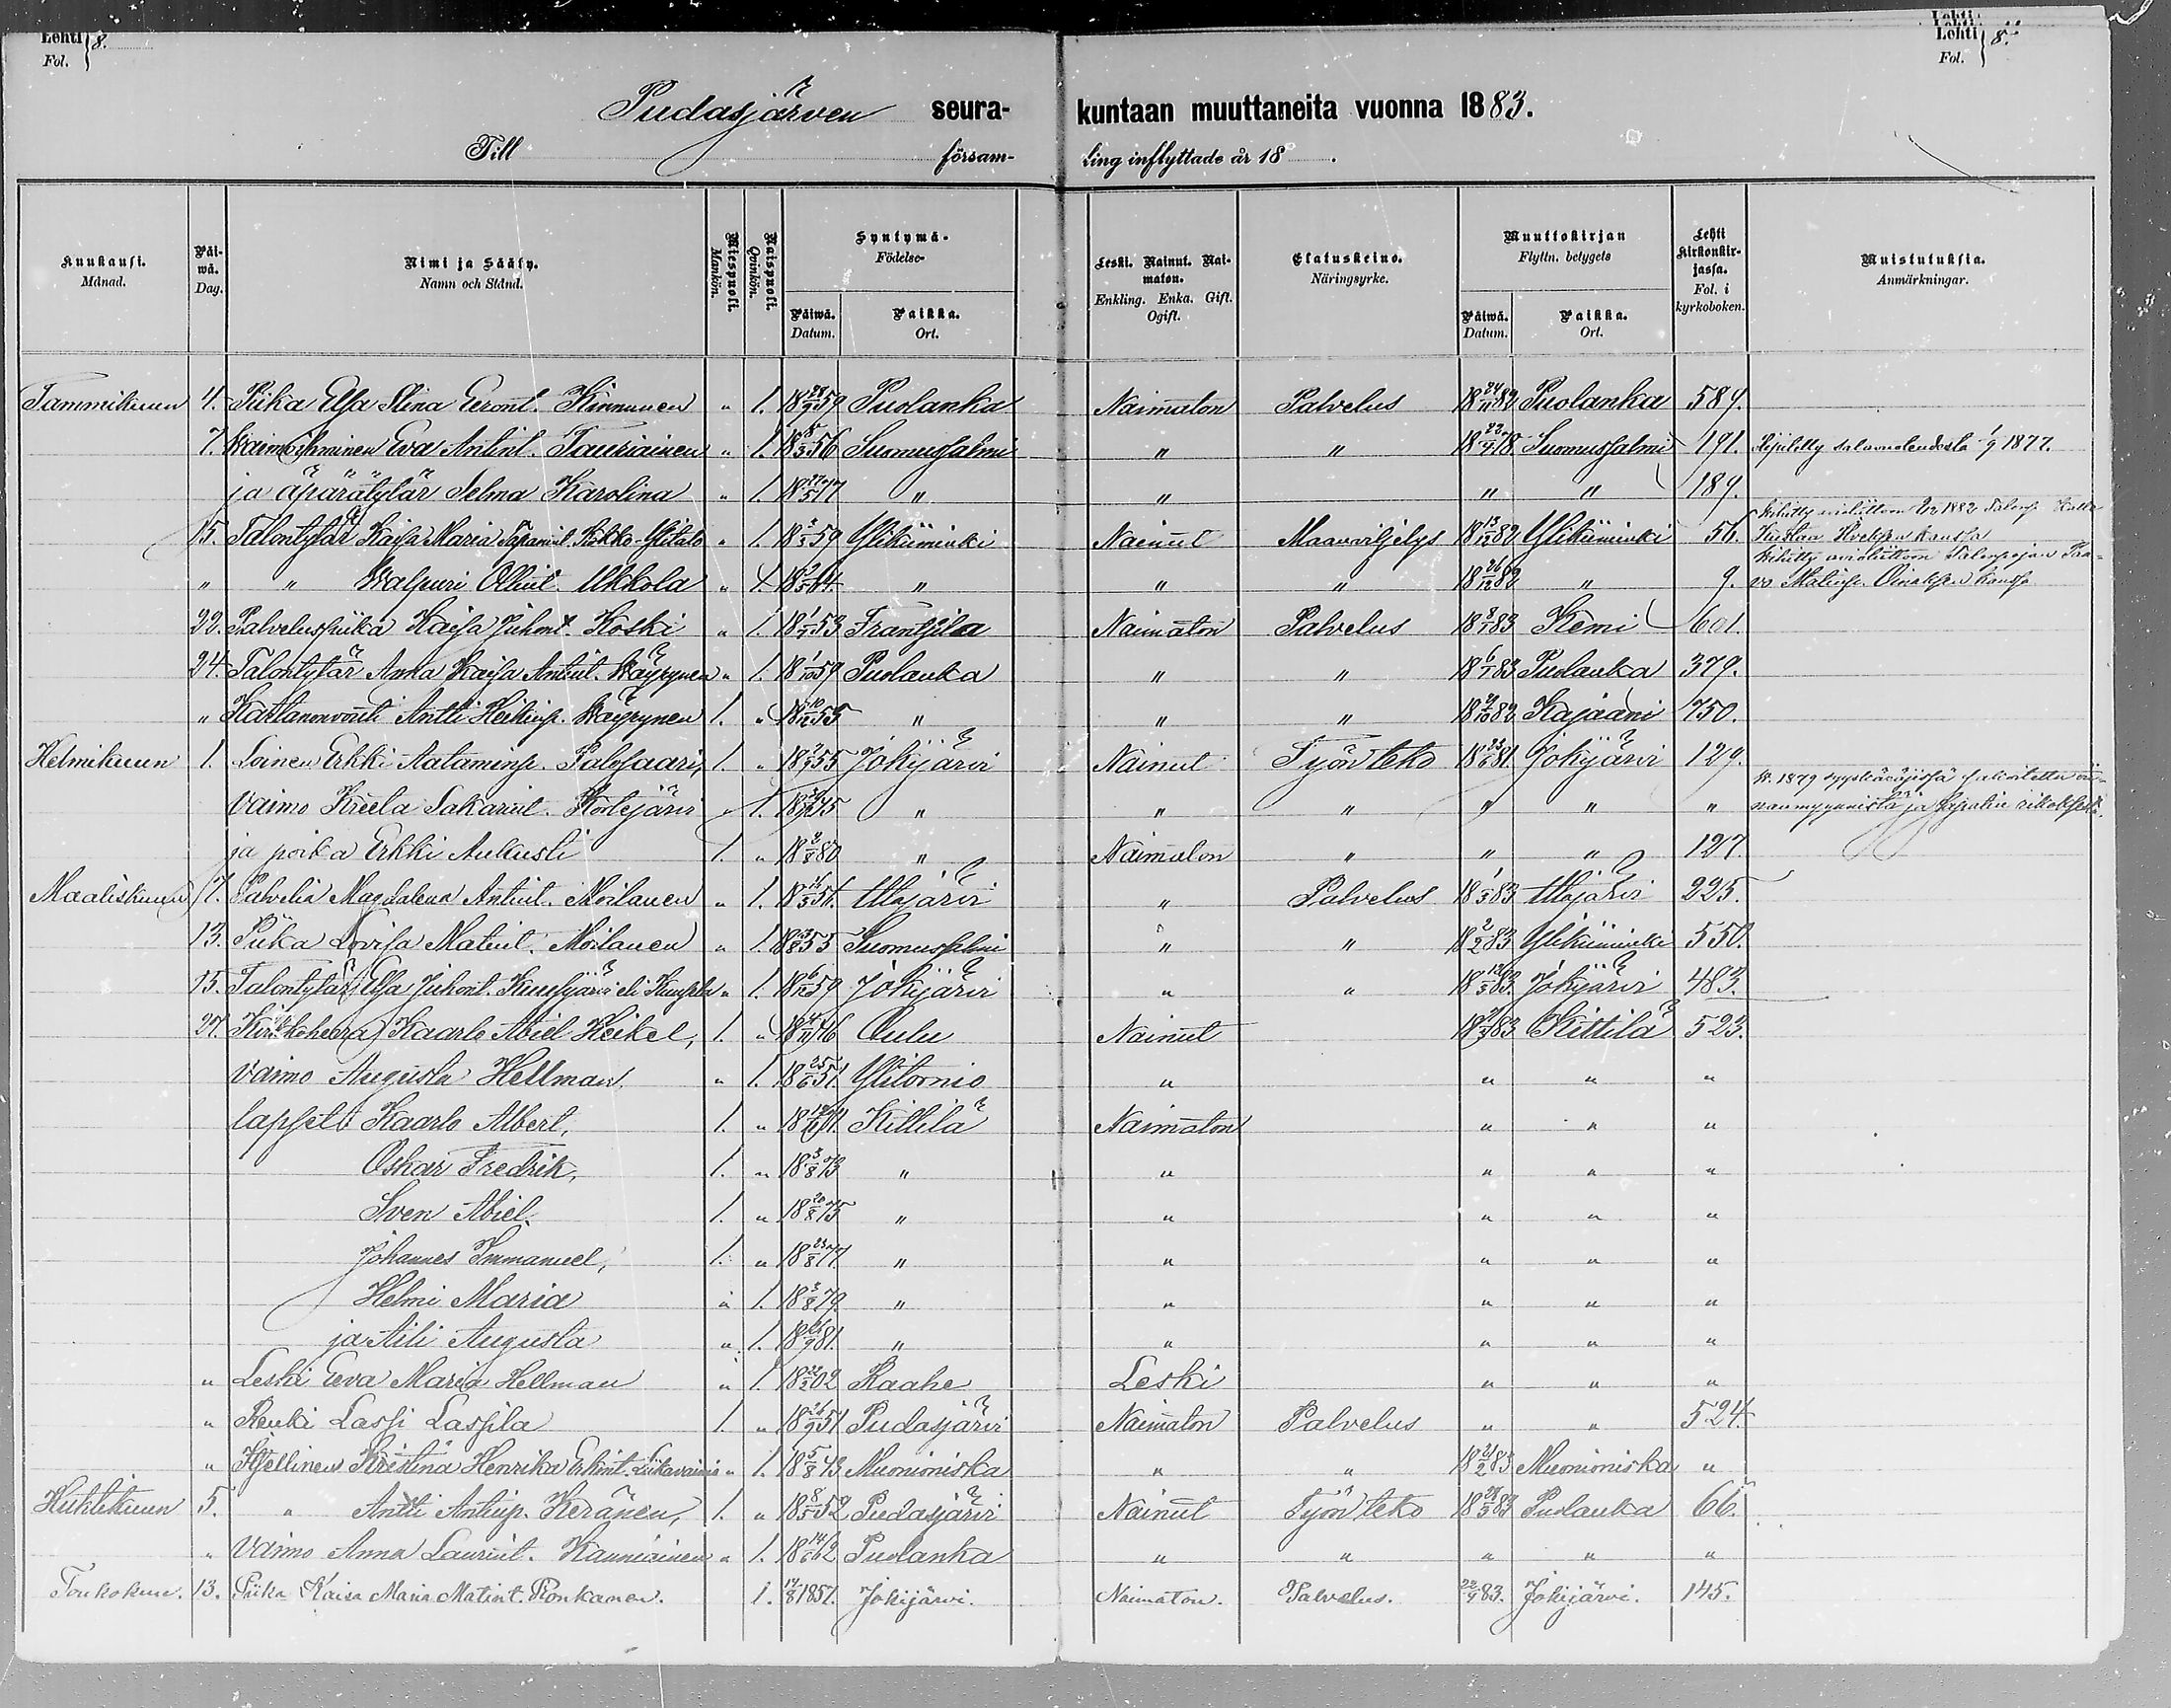 Lehti 8.
Fol.
Lehti
Lehti 8.
Fol.
Pudasjärven seura- kuntaan muuttaneita vuonna 1883.
Till försam- ling inflyttade år 18 .
Kuukausi. Månad. Päiwä. Dag. Nimi ja Sääty. Namn och Stånd. Miespuoli. Mankön. Naispuoli. Qvinkön. Syntymä- Födelse- Päiwä. Datum. Paikka. Ort. Leski. Nainut. Naimaton. Enkling. Enka. Gift. Ogift. Elatuskeino. Näringsyrke. Muuttokirjan Flyttn. betygets Päiwä. Datum. Paikka. Ort. Lehti Kirkonkirjassa. Fol. i kyrkoboken. Muistutuksia. Anmärkningar.
Tammikuun 4. Piika Elsa Stina Eeront. Kinnunen " 1. 18 29/9 59 Puolanka Naimaton Palvelus 18 24/11 82 Puolanka 589.
7. Waimoihminen Eva Antint. Tauriainen " 1. 18 8/3 56 Suomussalmi " " 18 22/4 78 Suomussalmi 191. Ripitetty salavuoteudesta 1/9 1877.
ja äpärätytär Selma Karolina " 1. 18 27/5 77 " " " " 189.
15. Talontytär Kaisa Maria Tapanint. Kukko-Ylitalo " 1. 18 2/5 59 Ylikiiminki Nainut Maanviljelys 18 13/12 82 Ylikiiminki 56. kanssa
" " Walpuri Ollint. Ukkola " 1. 18 2/5 64. " " " 18 26/12 82 " 9. kanssa
22. Palveluspiika Kaisa Juhont. Koski " 1. 18 1/7 53 Frantsila Naimaton Palvelus 18 8/1 83 Kemi 601.
24. Talontytär Anna Kaisa Antint. Wäyrynen " 1. 18 1/10 59 Puolanka " " 18 6/1 83 Puolanka 379.
" Kartanonvouti Antti Heikinp. Wäyrynen 1. " 18 10/12 55 " " " 18 9/10 82 Kajaani 750.
Helmikuun 1. Loinen Erkki Aataminp. Palosaari, 1. " 18 2/7 55 Jokijärvi Nainut Työn teko 18 23/6 81. Jokijärvi 129.
Vaimo Kreeta Sakarint. Kortejärvi " 1. 18 30/9 45 " " " " " "
ja poika Erkki Aukusti 1. " 18 2/8 80 " Naimaton " " " 127.
Maaliskuun 7. Palvelia Magdalena Antint. Moilanen " 1. 18 16/5 56. Utajärvi " Palvelus 18 1/3 83 Utajärvi 225.
13. Piika Lovisa Matint. Moilanen " 1. 18 13/8 55 Suomussalmi " " 18 2/2 83 Ylikiiminki 550.
15. Talontytär Elsa Juhont. Kuusijärvi eli " 1. 18 6/12 59 Jokijärvi " " 18 12/3 83. Jokijärvi 483.
27. Kirkkoherra Kaarlo Abiel Heikel, 1. " 18 4/11 46 Oulu Nainut 18 2/3 83 Kittilä 523.
Vaimo Augusta Hellman " 1. 18 25/6 51. Ylitornio " " " "
lapset: Kaarlo Albert, 1. " Kittilä Naimaton " " "
Oskar Fredrik, 1. " 18 3/8 73 " " " " "
Sven Abiel. 1. " 18 20/8 75 " " " " "
Johannes Immanuel, 1. " 18 23/8 77 " " " " "
Helmi Maria " 1. 18 3/8 79. " " " " "
ja Aili Augusta " 1. 18 26/9 81. " " " " "
" Leski Eeva Maria Hellman " 1. 18 22/2 02 Raahe Leski " " "
" Renki Lassi Lassila 1. " 18 26/9 51 Pudasjärvi Naimaton Palvelus " " 524.
" Itsellinen Kristina Henrika Erkint. Liikavainio " 1. 18 5/8 43 Muonioniska " " 18 21/2 83 Muonioniska "
Huhtikuun 5. " Antti Antinp. Keränen, 1. " 18 8/5 52 Pudasjärvi Nainut Työn teko 18 28/3 83 Puolanka 66.
" Vaimo Anna Laurint. Kauniainen " 1. 18 14/6 62 Puolanka " " " " "
Toukokuu. 13. Piika Kaisa Maria Matint. Ronkanen. 1. 14/8 1851. Jokijärvi. Naimaton. Palvelus. 22/4 83. Jokijärvi. 145.